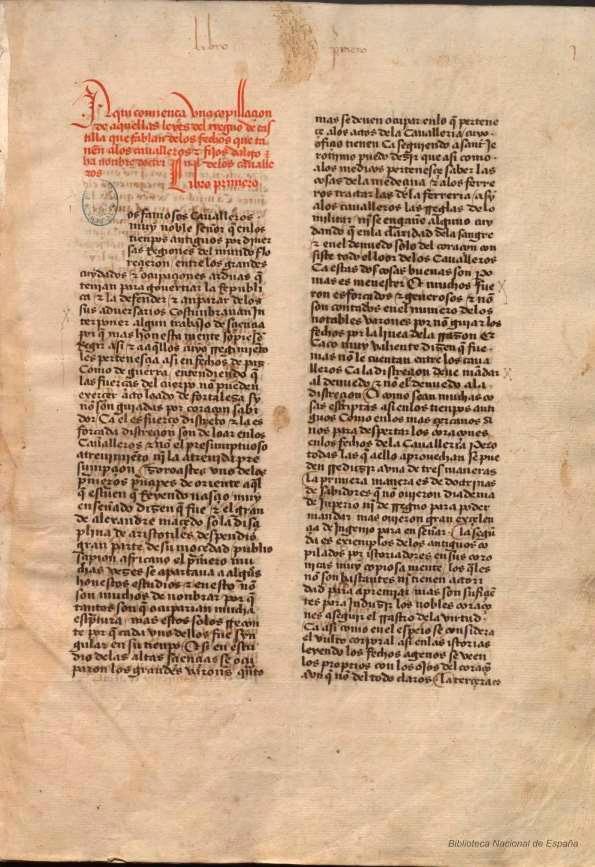 libro primero
Aqui comiença vna copillaçion
de aquellas leyes del rregno de cas
tilla que fablan delos fechos que ta
nen alos caualleros & fijos dalgo &
ha nonbre doctrinal delos caualle
ros
Libro primero
os famosos Caualleros
muy noble señor q̃ enlos
tienpos antiguos por diuer
sas Regiones del mundo flo
reçieron entre los grandes
cuydados & ocupaçiones arduas q̃
tenian para gouernar la Republi
ca & la defender & anparar delos
sus aduersarios Costunbrauan in
terponer algun trabajo de sçiençia
por q̃ mas honesta mente sopiesẽ
Regir asi & a aq̃llos cuyo rregimiẽto
les pertenesçia asi en fechos de paz
Como de guerra entendiendo q̃
las fuerças del cuerpo no pueden
exerçer acto loado de fortaleza sy
nõ son guiadas por coraçon sabi
dor Ca el esfuerço discreto & la es
forçada discreçion son de loar enlos
Caualleros & nõ el presumptuoso
atreuimiẽto nin la atreuida pre
sumpçion Çoroastes vno delos
primeros prinçipes de oriente aq̃l
que escriuen q̃ Reyendo nasçio muy
enseñado dizen que fue & el gran
de alexandre maçedo so la disçi
plina de aristotiles despendio
gran parte de su moçedad publio
sçipion africano el primero mu
chas vezes se apartaua a algũs
honestos estudios & en esto nõ
son muchos de nonbrar por q̃
tantos son q̃ ocuparian mucha
escriptura mas estos solos rrecon
te por q̃ cada vno dellos fue syn
gular en su tienpo E si en estu
dio de las altas sçiençias se ocu
paron los grandes varones quãto
mas se deuen ocupar enlo q̃ pertene
çe alos actos dela Caualleria cuyo
ofiçio tienen Ca seguiendo a sant je
ronimo puedo dezir que asi como
alos medicos pertenesçe saber las
cosas dela mediçina & alos ferre
ros tractar las dela ferreria asy
alos caualleros las rreglas delo
militar nin se engañe alguno cuy
dando q̃ enla claridad dela sangre
& en el denuedo solo del coraçon con
siste todo el loor delos Caualleros
Ca estas dos cosas buenas son Pe
mas es menester E muchos fue
ron esforçados & generosos & nõ
son contados en el numero delos
notables varones por nõ guiar los
fechos por la linea dela rrazon E
Caco muy valiente dizen q̃ fue
mas no le cuentan entre los caua
lleros Ca la discreçion deue mãdar
al denuedo & nõ el denuedo ala
discreçion E como sean muchas co
sas escriptas asi enlos tienpos anti
guos Como enlos mas çercanos a
nos para despertar los coraçones
enlos fechos dela Caualleria Pero
todas las q̃ a ello aprouechan se pue
den rreduzir a vna de tres maneras
La primera manera es de doctrinas
de sabidores q̃ no ouieron diadema
de inperio nin de rregno para poder
mandar mas ouieron gran exçelen
çia de ingenio para en señar La segũ
da es exemplos delos antiguos co
pilados por istoriadores en sus coro
nicas muy copiosa mente los q̃les
nõ son bastantes nin tienen actori
dad para apremiar mas son sufiçiẽ
tes para induzir los nobles coraço
nes a seguir el rrastro dela virtud
Ca asi como en el espejo se considera
el vulto corporal asi enlas istorias
leyendo los fechos agenos se veen
los proprios con los ojos del coraçõ
avn q̃ no del todo claros La terçera co
Biblioteca Nacional de España